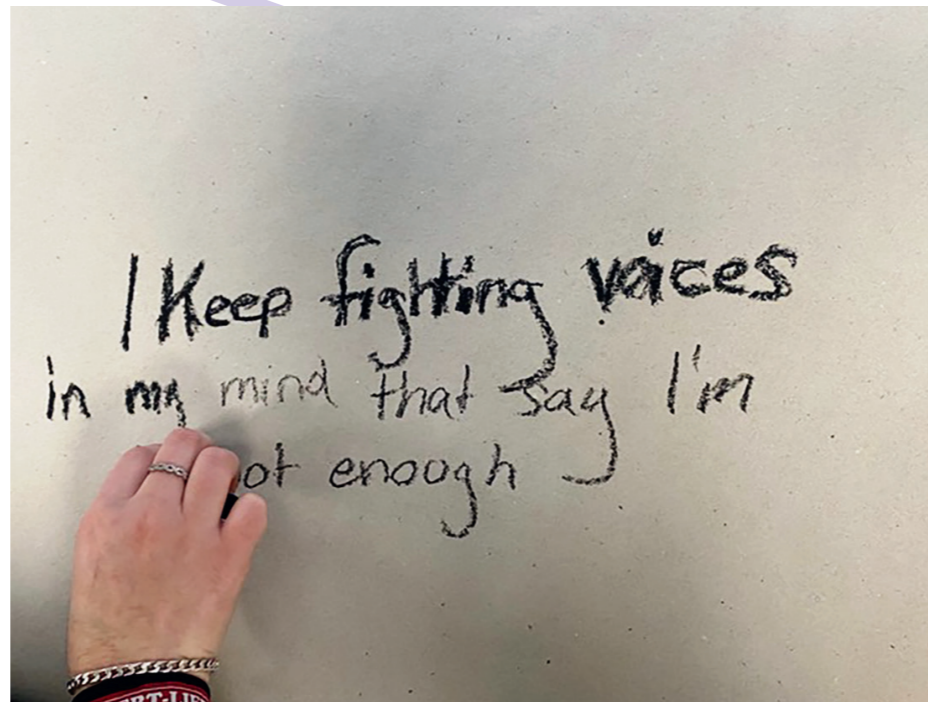 I Keep fighting voices
in my mind that say I'm
not enough